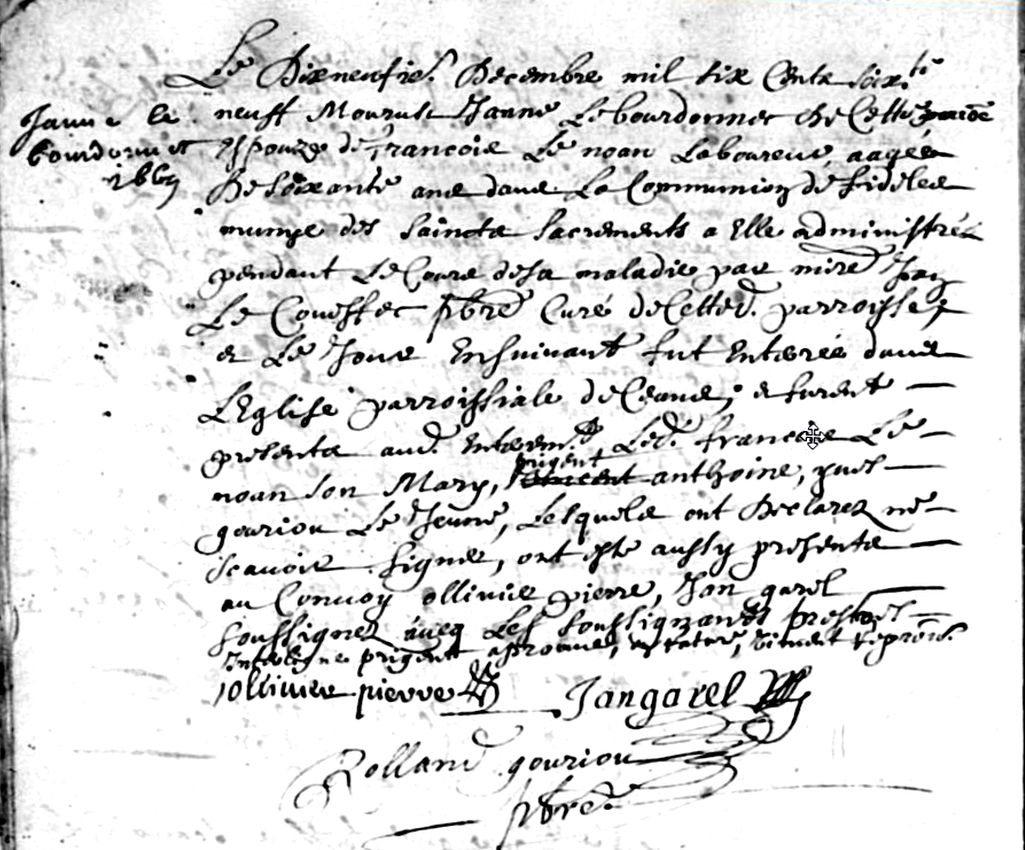 Le Dixneufie. Decembre mil six Cents soix.te
neuff Mourust Janne Lebourdonnec de Cette
Janne le
bourdonnec
1669
Espouze de francois Le noan Laboureur, aagée
De Soixante ans dans La Communion de fideles
munye des saincts sacrements a Elle administrés
pendant Le Cours de sa maladie par mire Jan
Le Coueffec pbre Curé de Cetted. parroisse,
et Le Jour Ensuivant fut Enterée dans
LEglise parroissiale de Ceans; et furent
presents aud. Enterem.t Led. francois Le
noan son Mary, prigent anthoine, yves
gouriou Le Jeune, Lesquels ont Declarez ne
scavoir signer, ont este aussy presents
au Convoy ollivier pierre, Jan garel
soussignez aveq Les soussignants prestres
Interligne prigent aprouvé, et rature, vincent reprouvé.
ollivier pierre Jangarel
Rolland gouriou
pbre.